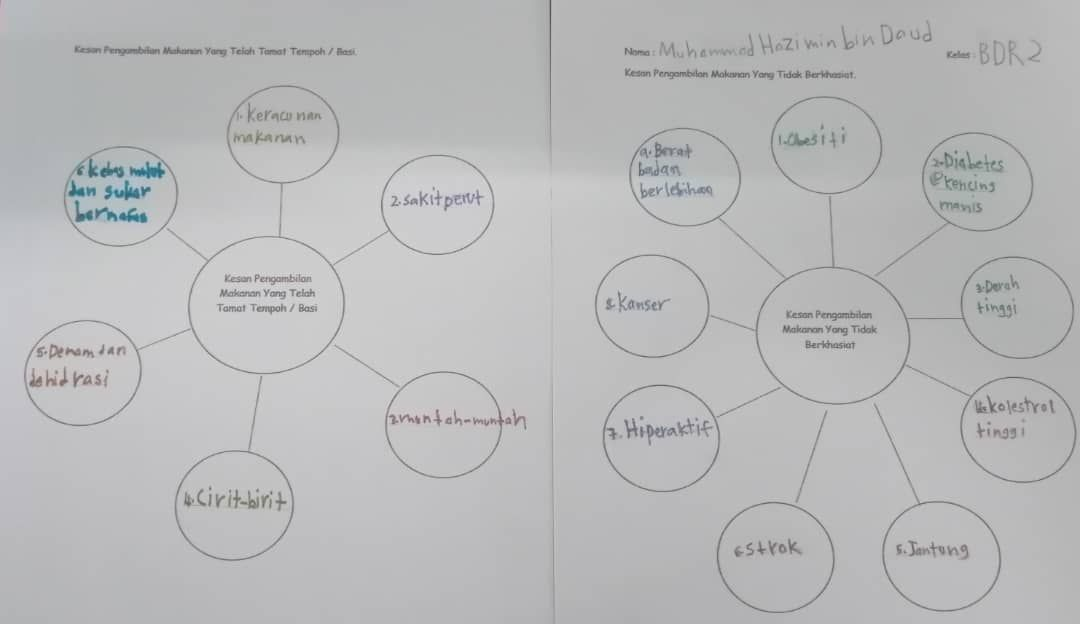 Kesan Pengambilan Makanan Yang Telah Tamat Tempoh / Basi.
1. Keracunan
makanan
2. sakit perut
3. muntah-muntah
4. Cirit-birit
5. Demam dan
dehidrasi
6. kebas mulut
dan sukar
bernafas
Kesan Pengambilan
Makanan Yang Telah
Tamat Tempoh / Basi
Nama : Muhammad Hazimin bin Daud
Kelas : BDR 2
Kesan Pengambilan Makanan Yang Tidak Berkhasiat.
1. Obesiti
2. Diabetes
@ kencing
manis
3. Derah
tinggi
4. kolestrol
tinggi
5. Jantung
6 Strok
7. Hiperaktif
8. Kanser
9. Berat
badan
berlebihan
Kesan Pengambilan
Makanan Yang Tidak
Berkhasiat